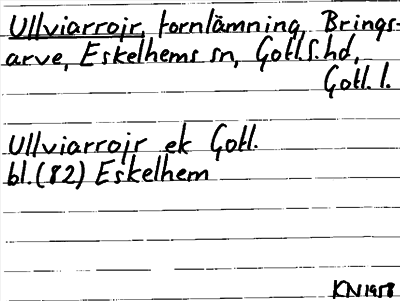 Ullviarrojr, fornlämning, Brings-
arve, Eskelhems sn, Gotl.S.hd,
Gotl. l.
Ullviarrojr ek Gotl.
bl.(82) Eskelhem
KN 1958